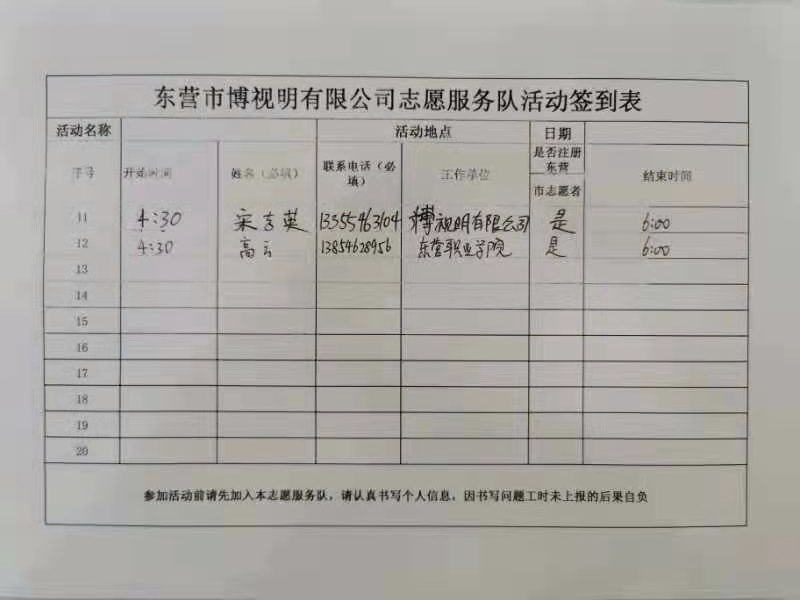 东营市博视明有限公司志愿服务队活动签到表
活动名称 活动地点 日期
序号 开始时间 姓名（必填） 联系电话（必填） 工作单位 是否注册东营市志愿者 结束时间
11 4:30 宋言英 13355463104 博视明有限公司 是 6:00
12 4:30 高云 13854628956 东营职业学院 是 6:00
13
14
15
16
17
18
19
20
参加活动前请先加入本志愿服务队，请认真书写个人信息，因书写问题工时未上报的后果自负